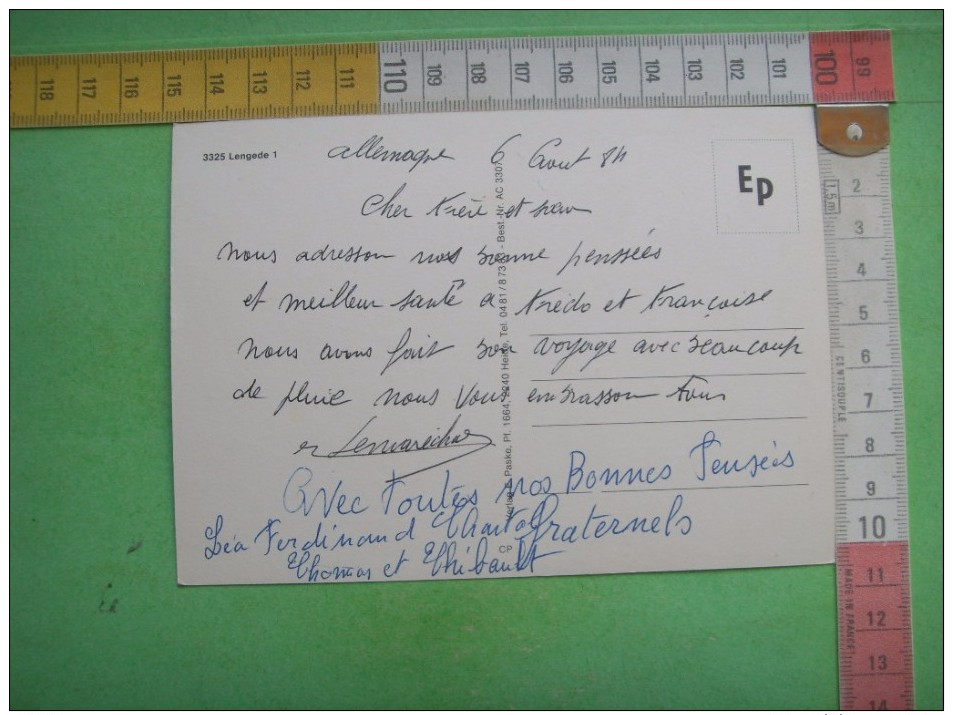 118 117 116 115 114 113 112 111 110 109 108 107 106 105 104 103 102 101 100 99
3325 Lengede 1
Allemagne 6 Aout 84
EP
Cher Frère et
nous adresson nos bonne pensséés
et meilleur santé a Frédo et Françoise
nous avons fait bon voyage avec beaucoup
de pluie nous vous embrasson tous
Lemaréchal
Avec Toutes nos Bonnes Pensées
fraternels
Léa Ferdinand Chantal
Thomas et Thibault
Paske, Pf. 1664, 2240 Heide, Tel. 0481/873 - Best.-Nr. AC 3307
1,5m
2
3
4
5
6
7
8
9
10
11
12
13
14
CENTISOUPLE
MADE IN FRANCE